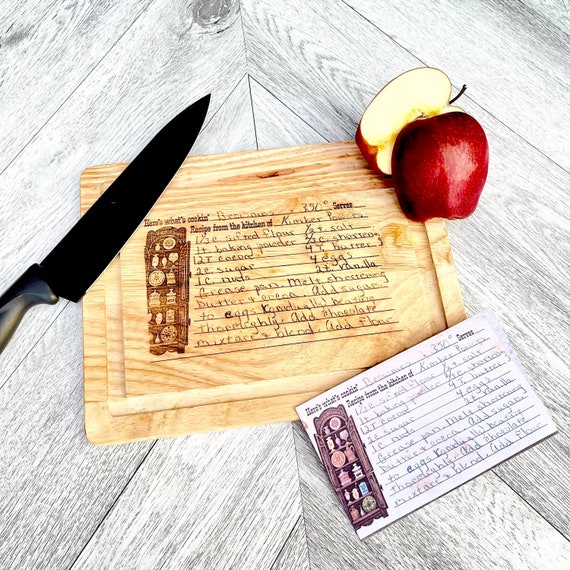 Here's what's cookin' Brownies 350° Serves
Recipe from the kitchen of Kimber Powers
1½c sifted flour ½t salt
1t baking powder ⅔c shortening
12T cocoa 4T butter
2c sugar 4 eggs
1c nuts 2t vanilla
Grease pan. Melt shortening
butter & cocoa. Add sugar
to eggs gradually beating
thoroughly. Add chocolate
mixture & blend. Add flour
Here's what's cookin' Brownies 350° Serves
Recipe from the kitchen of Kimber Powers
1½c sifted flour ½t salt
1t baking powder ⅔c shortening
12T cocoa 4T butter
2c sugar 4 eggs
1c nuts 2t vanilla
Grease pan. Melt shortening
butter & cocoa. Add sugar
to eggs gradually beating
thoroughly. Add chocolate
mixture & blend. Add flour